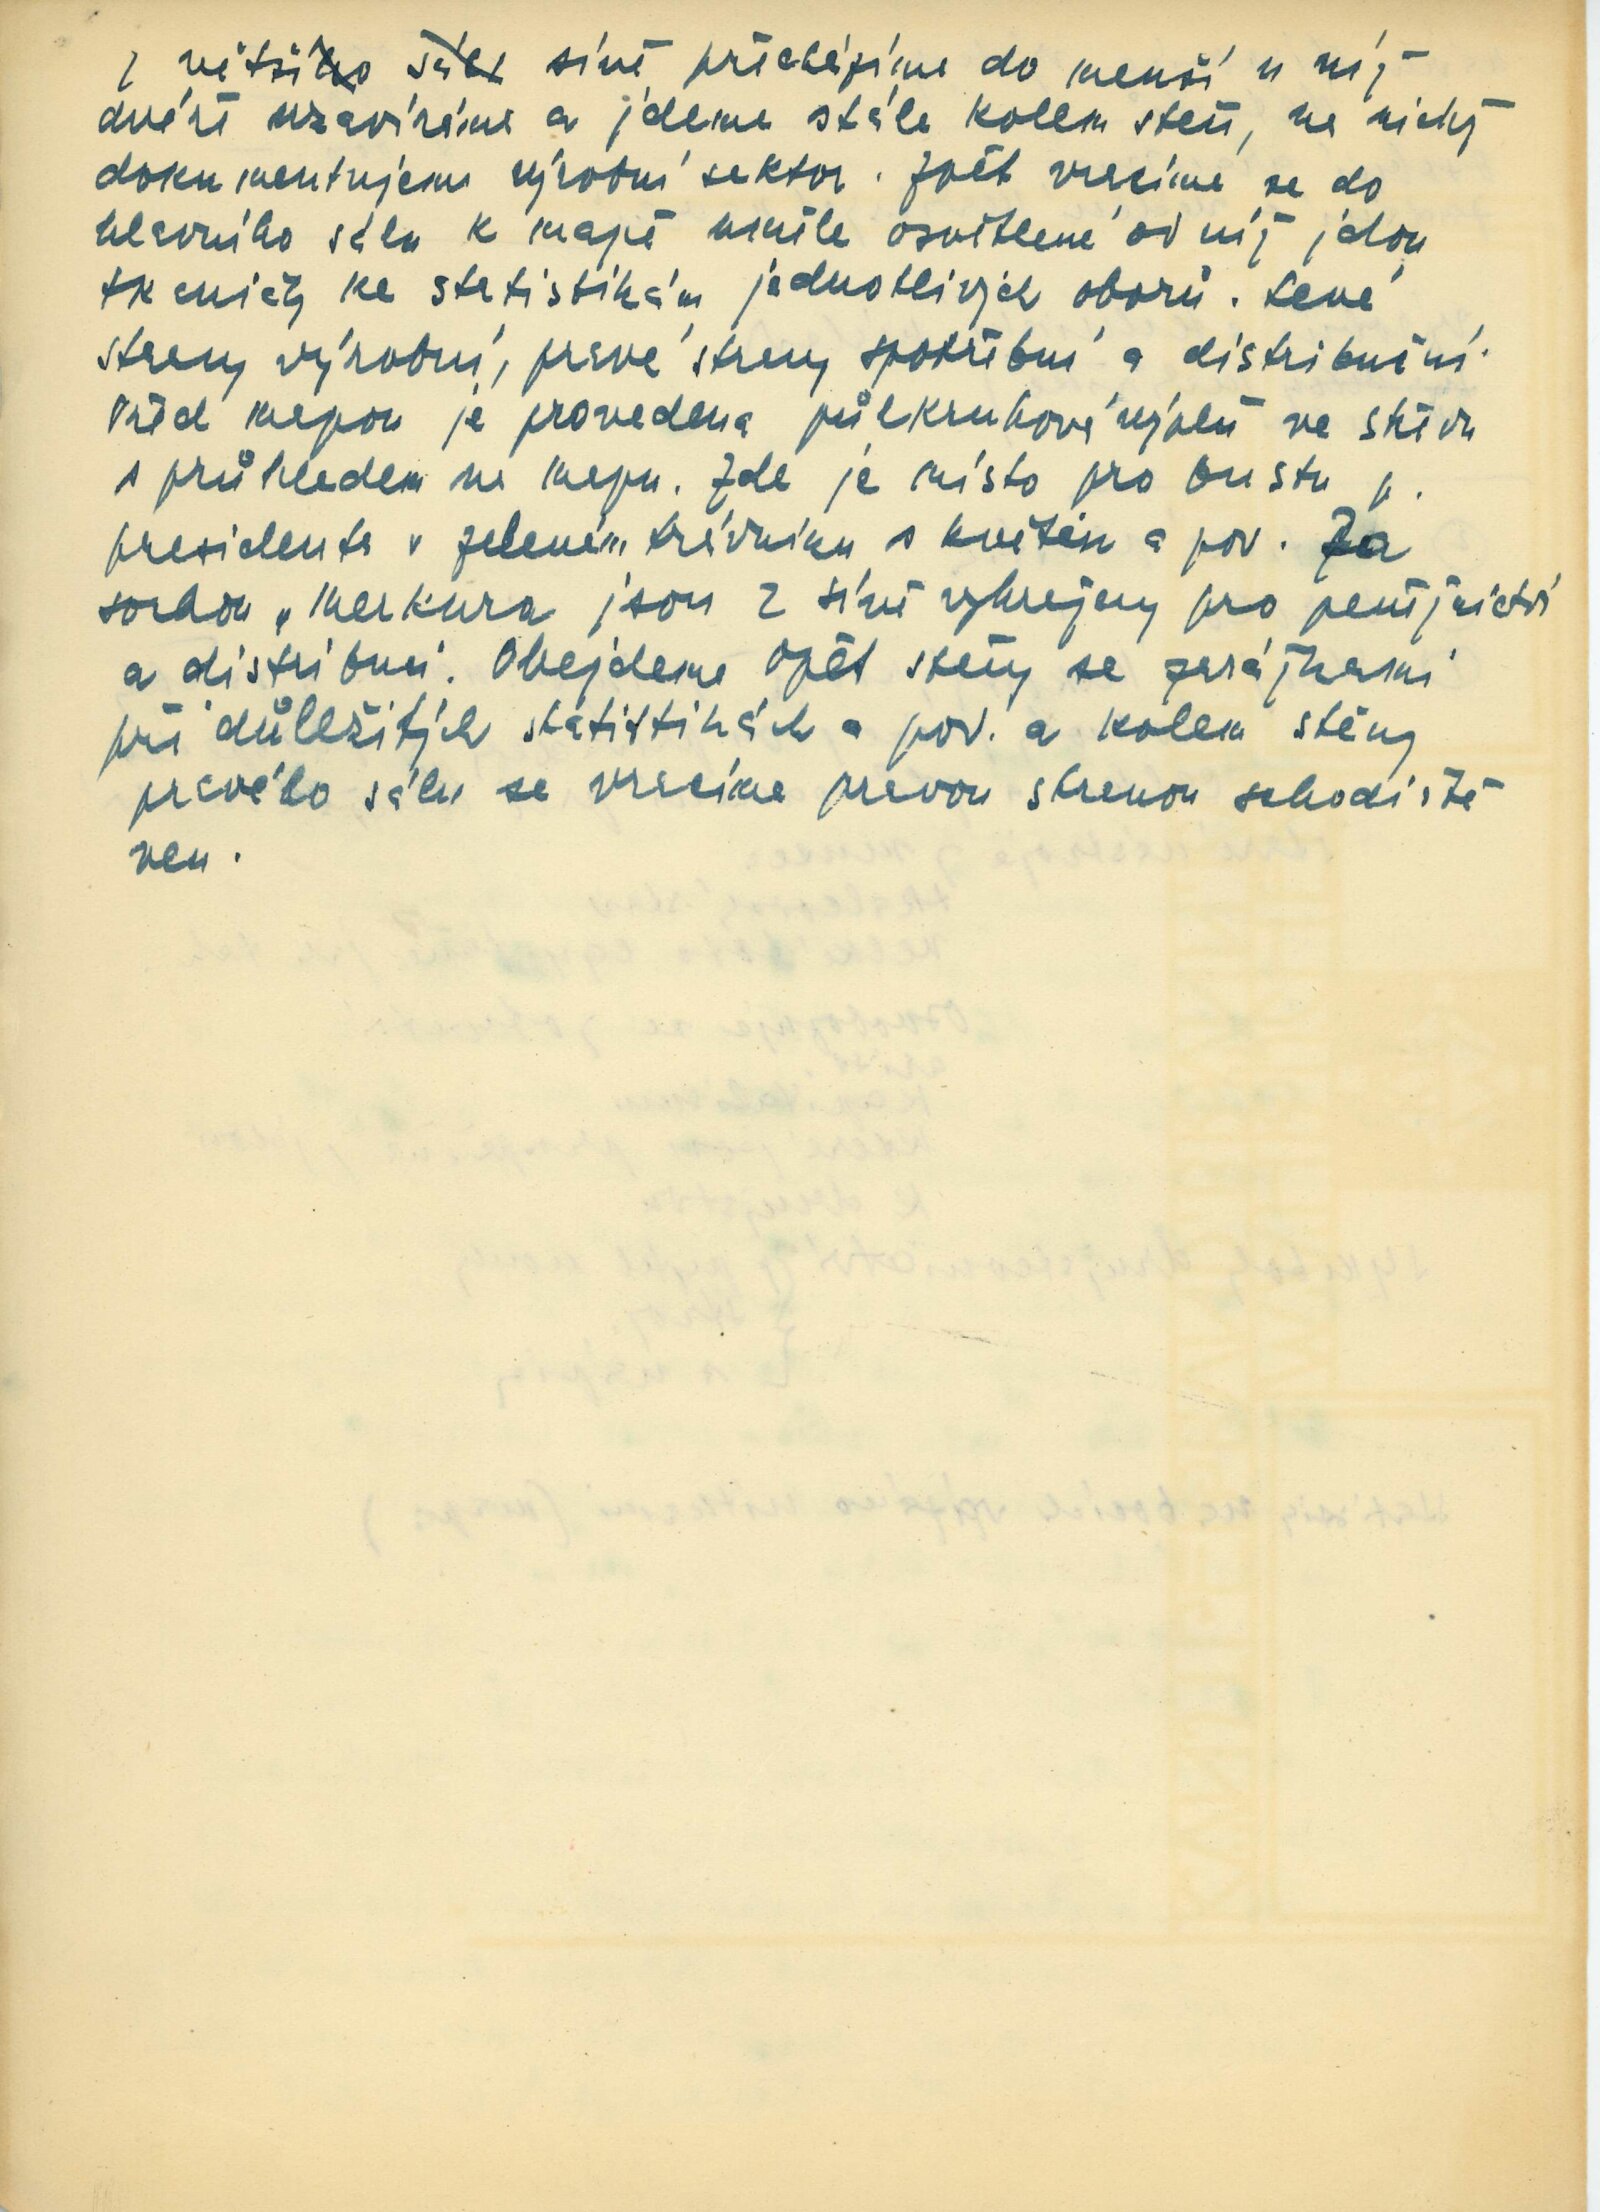 Z větší síně přecházíme do menší u níž
dveře uzavíráme a jdeme stále kolem stěn, na nichž
dokumentujeme výrobní sektor. Zpět vracíme se do
hlavního sálu k mapě uměle osvětlené od níž jdou
tkaničky ke statistikám jednotlivých oborů. Levé
strany výrobní, pravé strany spotřební a distribuční.
Před mapou je provedena půlkruhová výplň ve středu
s průhledem na mapu. Zde je místo pro bustu p.
presidenta v zeleném trávníku s květin a pod. Za
sochou „Merkura jsou 2 síně vyhrazeny pro peněžnictví
a distribuci. Obejdeme opět stěny se zarážkami
při důležitých statistikách a pod. a kolem stěny
pravého sálu se vracíme pravou stranou schodiště
ven.